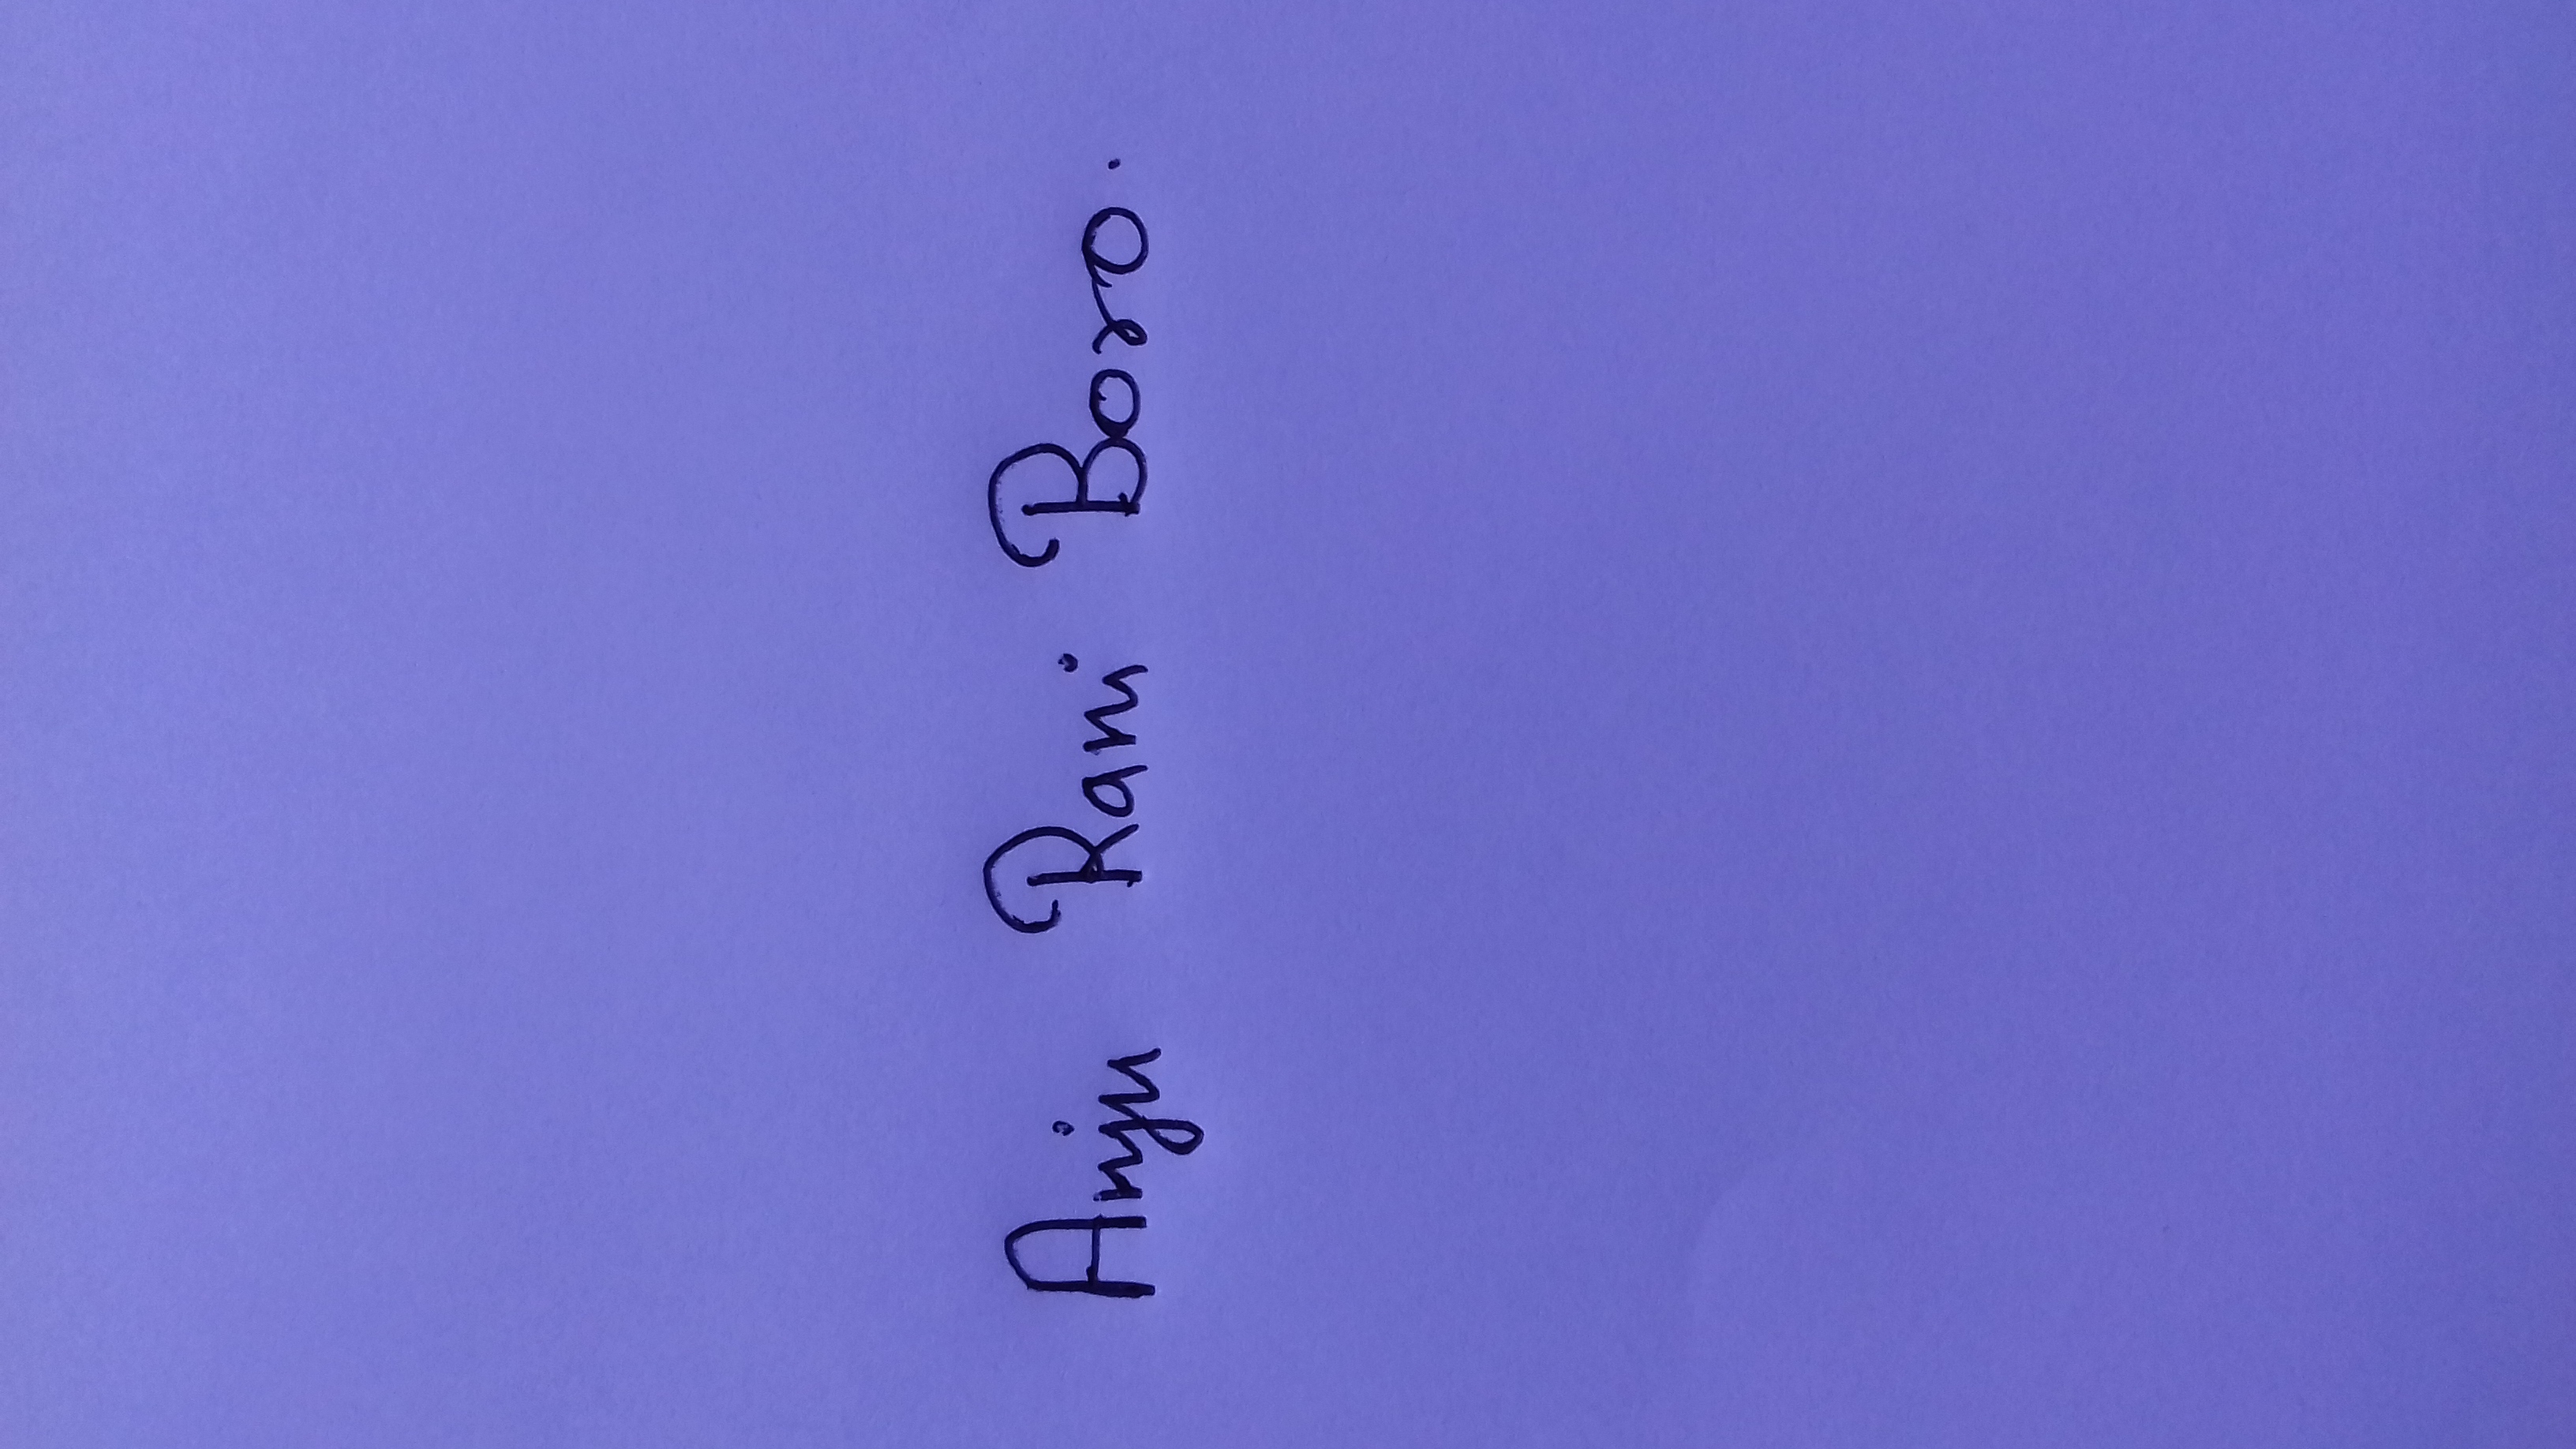 Anju Rani Boro.